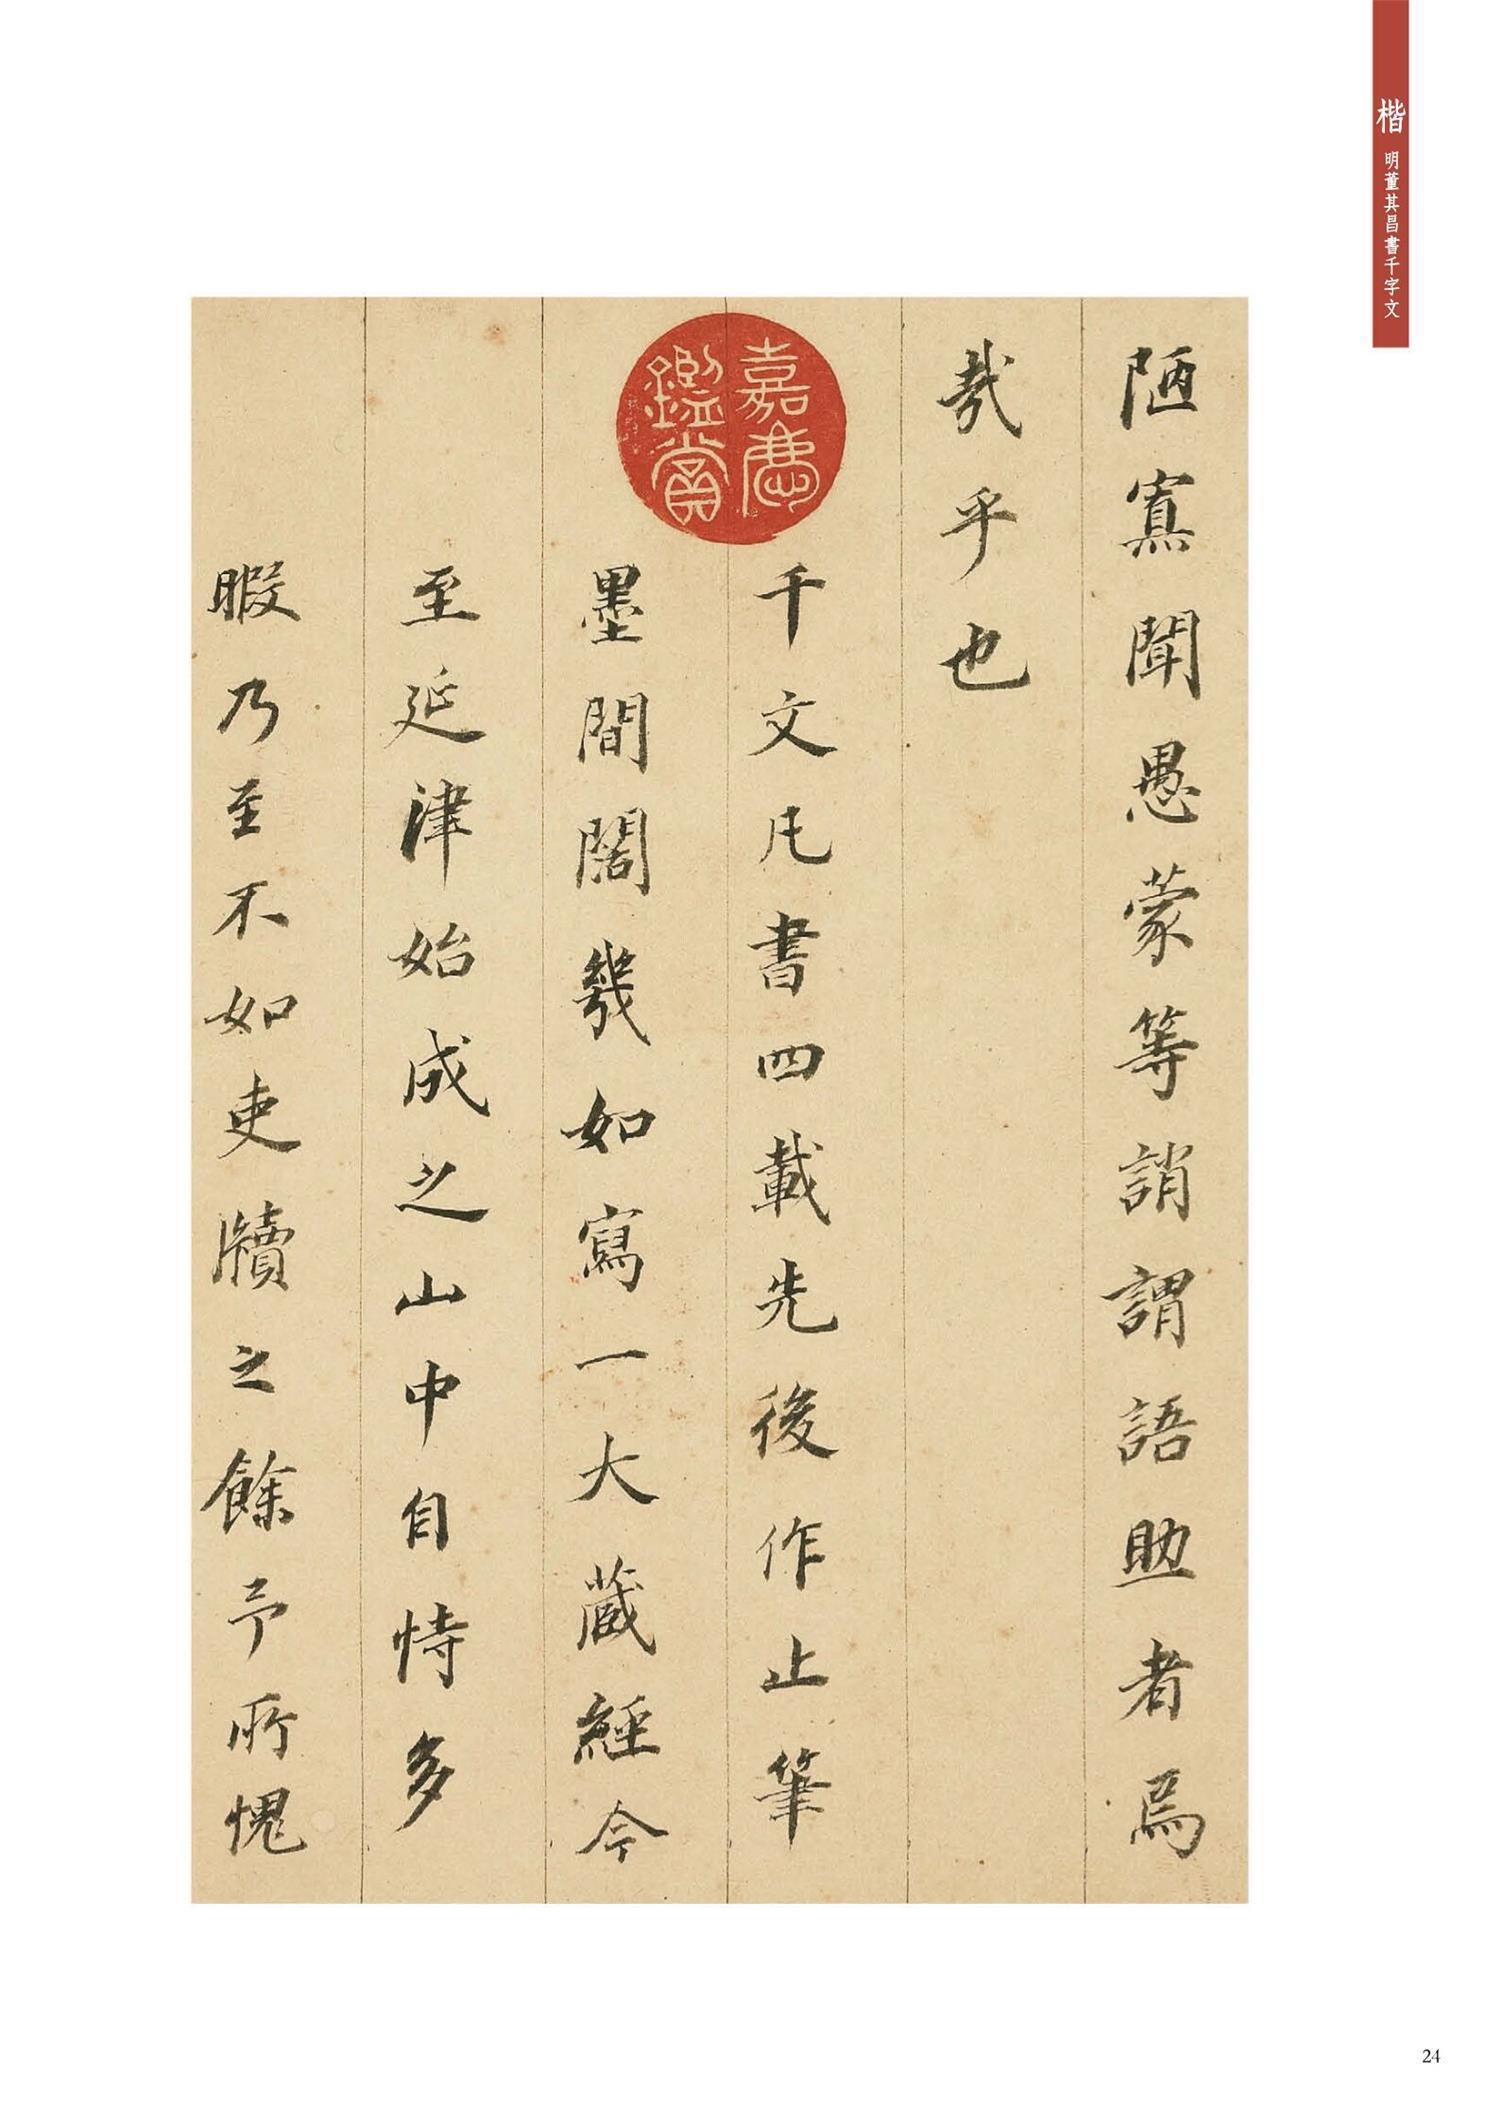 楷 明董其昌書千字文
陋寡聞愚蒙等誚謂語助者焉
哉乎也
嘉慶
鑑賞
千文凡書四載先後作止筆
墨間闊幾如寫一大藏經今
至延津始成之山中自恃多
暇乃至不如吏牘之餘予所愧
24